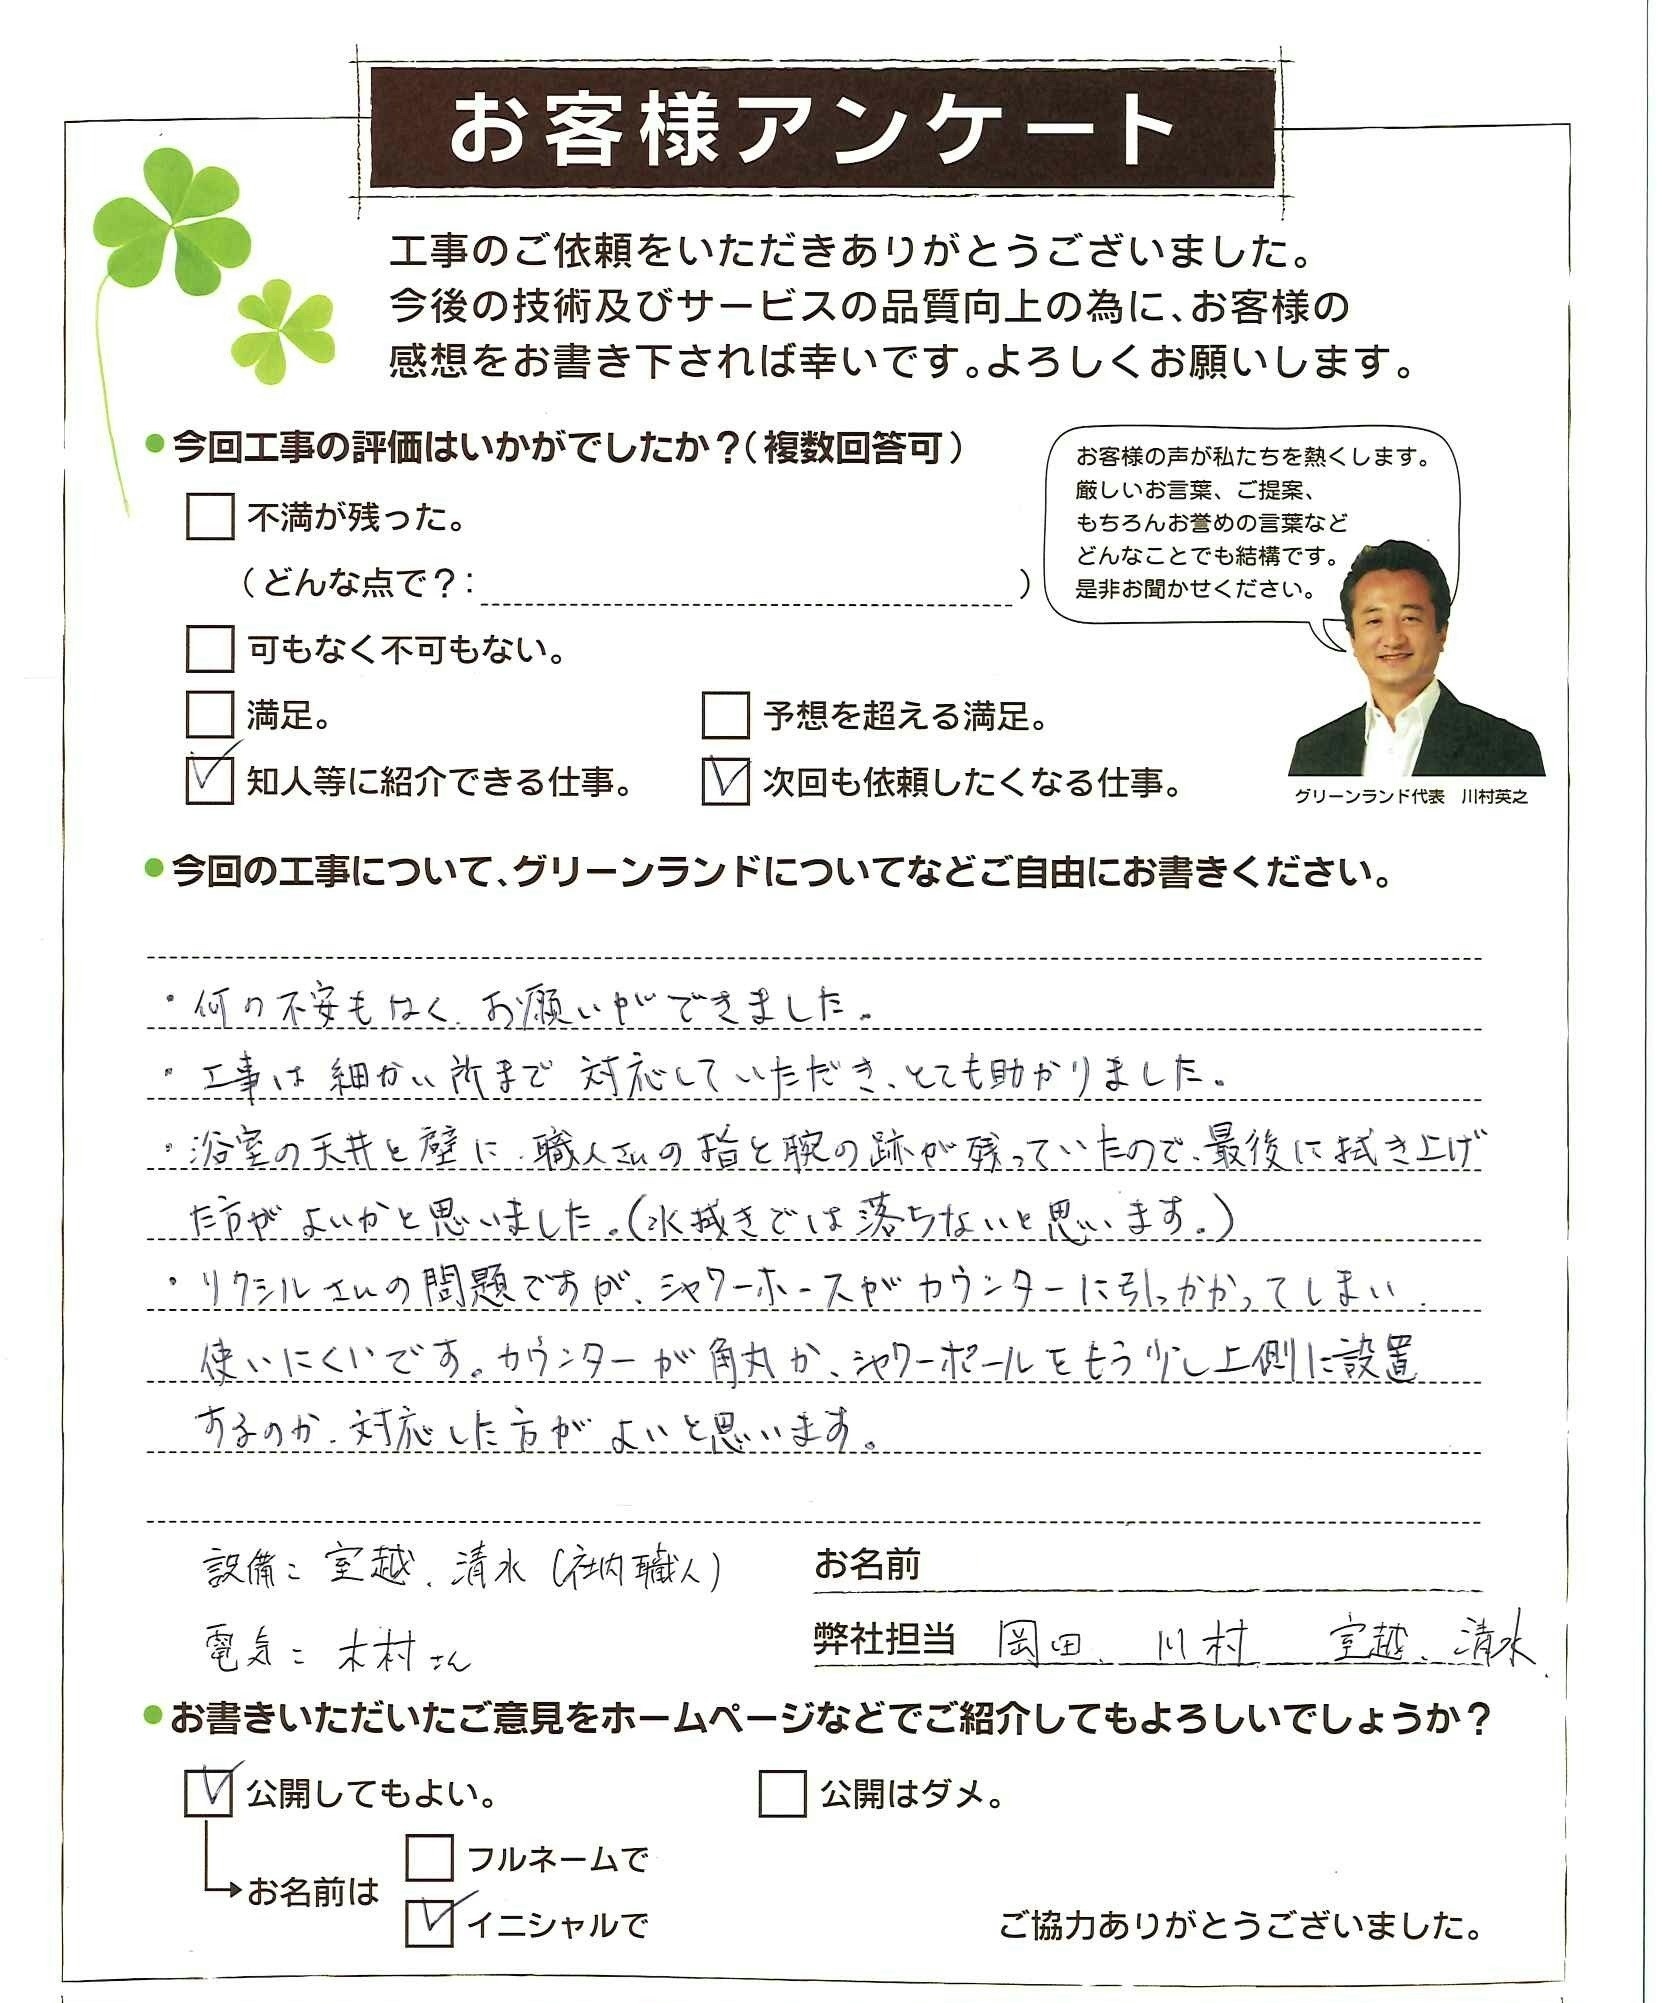 お客様アンケート
工事のご依頼をいただきありがとうございました。
今後の技術及びサービスの品質向上の為に、お客様の
感想をお書き下されば幸いです。よろしくお願いします。
●今回工事の評価はいかがでしたか？（複数回答可）
不満が残った。
（どんな点で？：　）
可もなく不可もない。
満足。
予想を超える満足。
知人等に紹介できる仕事。
次回も依頼したくなる仕事。
お客様の声が私たちを熱くします。
厳しいお言葉、ご提案、
もちろんお誉めの言葉など
どんなことでも結構です。
是非お聞かせください。
グリーンランド代表　川村英之
●今回の工事について、グリーンランドについてなどご自由にお書きください。
・何の不安もなく、お願いができました。
・工事は細かい所まで対応していただき、とても助かりました。
・浴室の天井と壁に、職人さんの指と腕の跡が残っていたので、最後に拭き上げ
た方がよいかと思いました。（水拭きでは落ちないと思います。）
・リクシルさんの問題ですが、シャワーホースがカウンターに引っかかってしまい、
使いにくいです。カウンターが角丸か、シャワーポールをもう少し上側に設置
するのか、対応した方がよいと思います。
設備：室越、清水（社内職人）
電気：木村さん
お名前
弊社担当　岡田、川村、室越、清水、
●お書きいただいたご意見をホームページなどでご紹介してもよろしいでしょうか？
公開してもよい。
公開はダメ。
お名前は
フルネームで
イニシャルで
ご協力ありがとうございました。